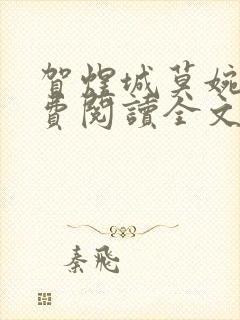 賀煌城莫婉
費閱讀全文
秦飛